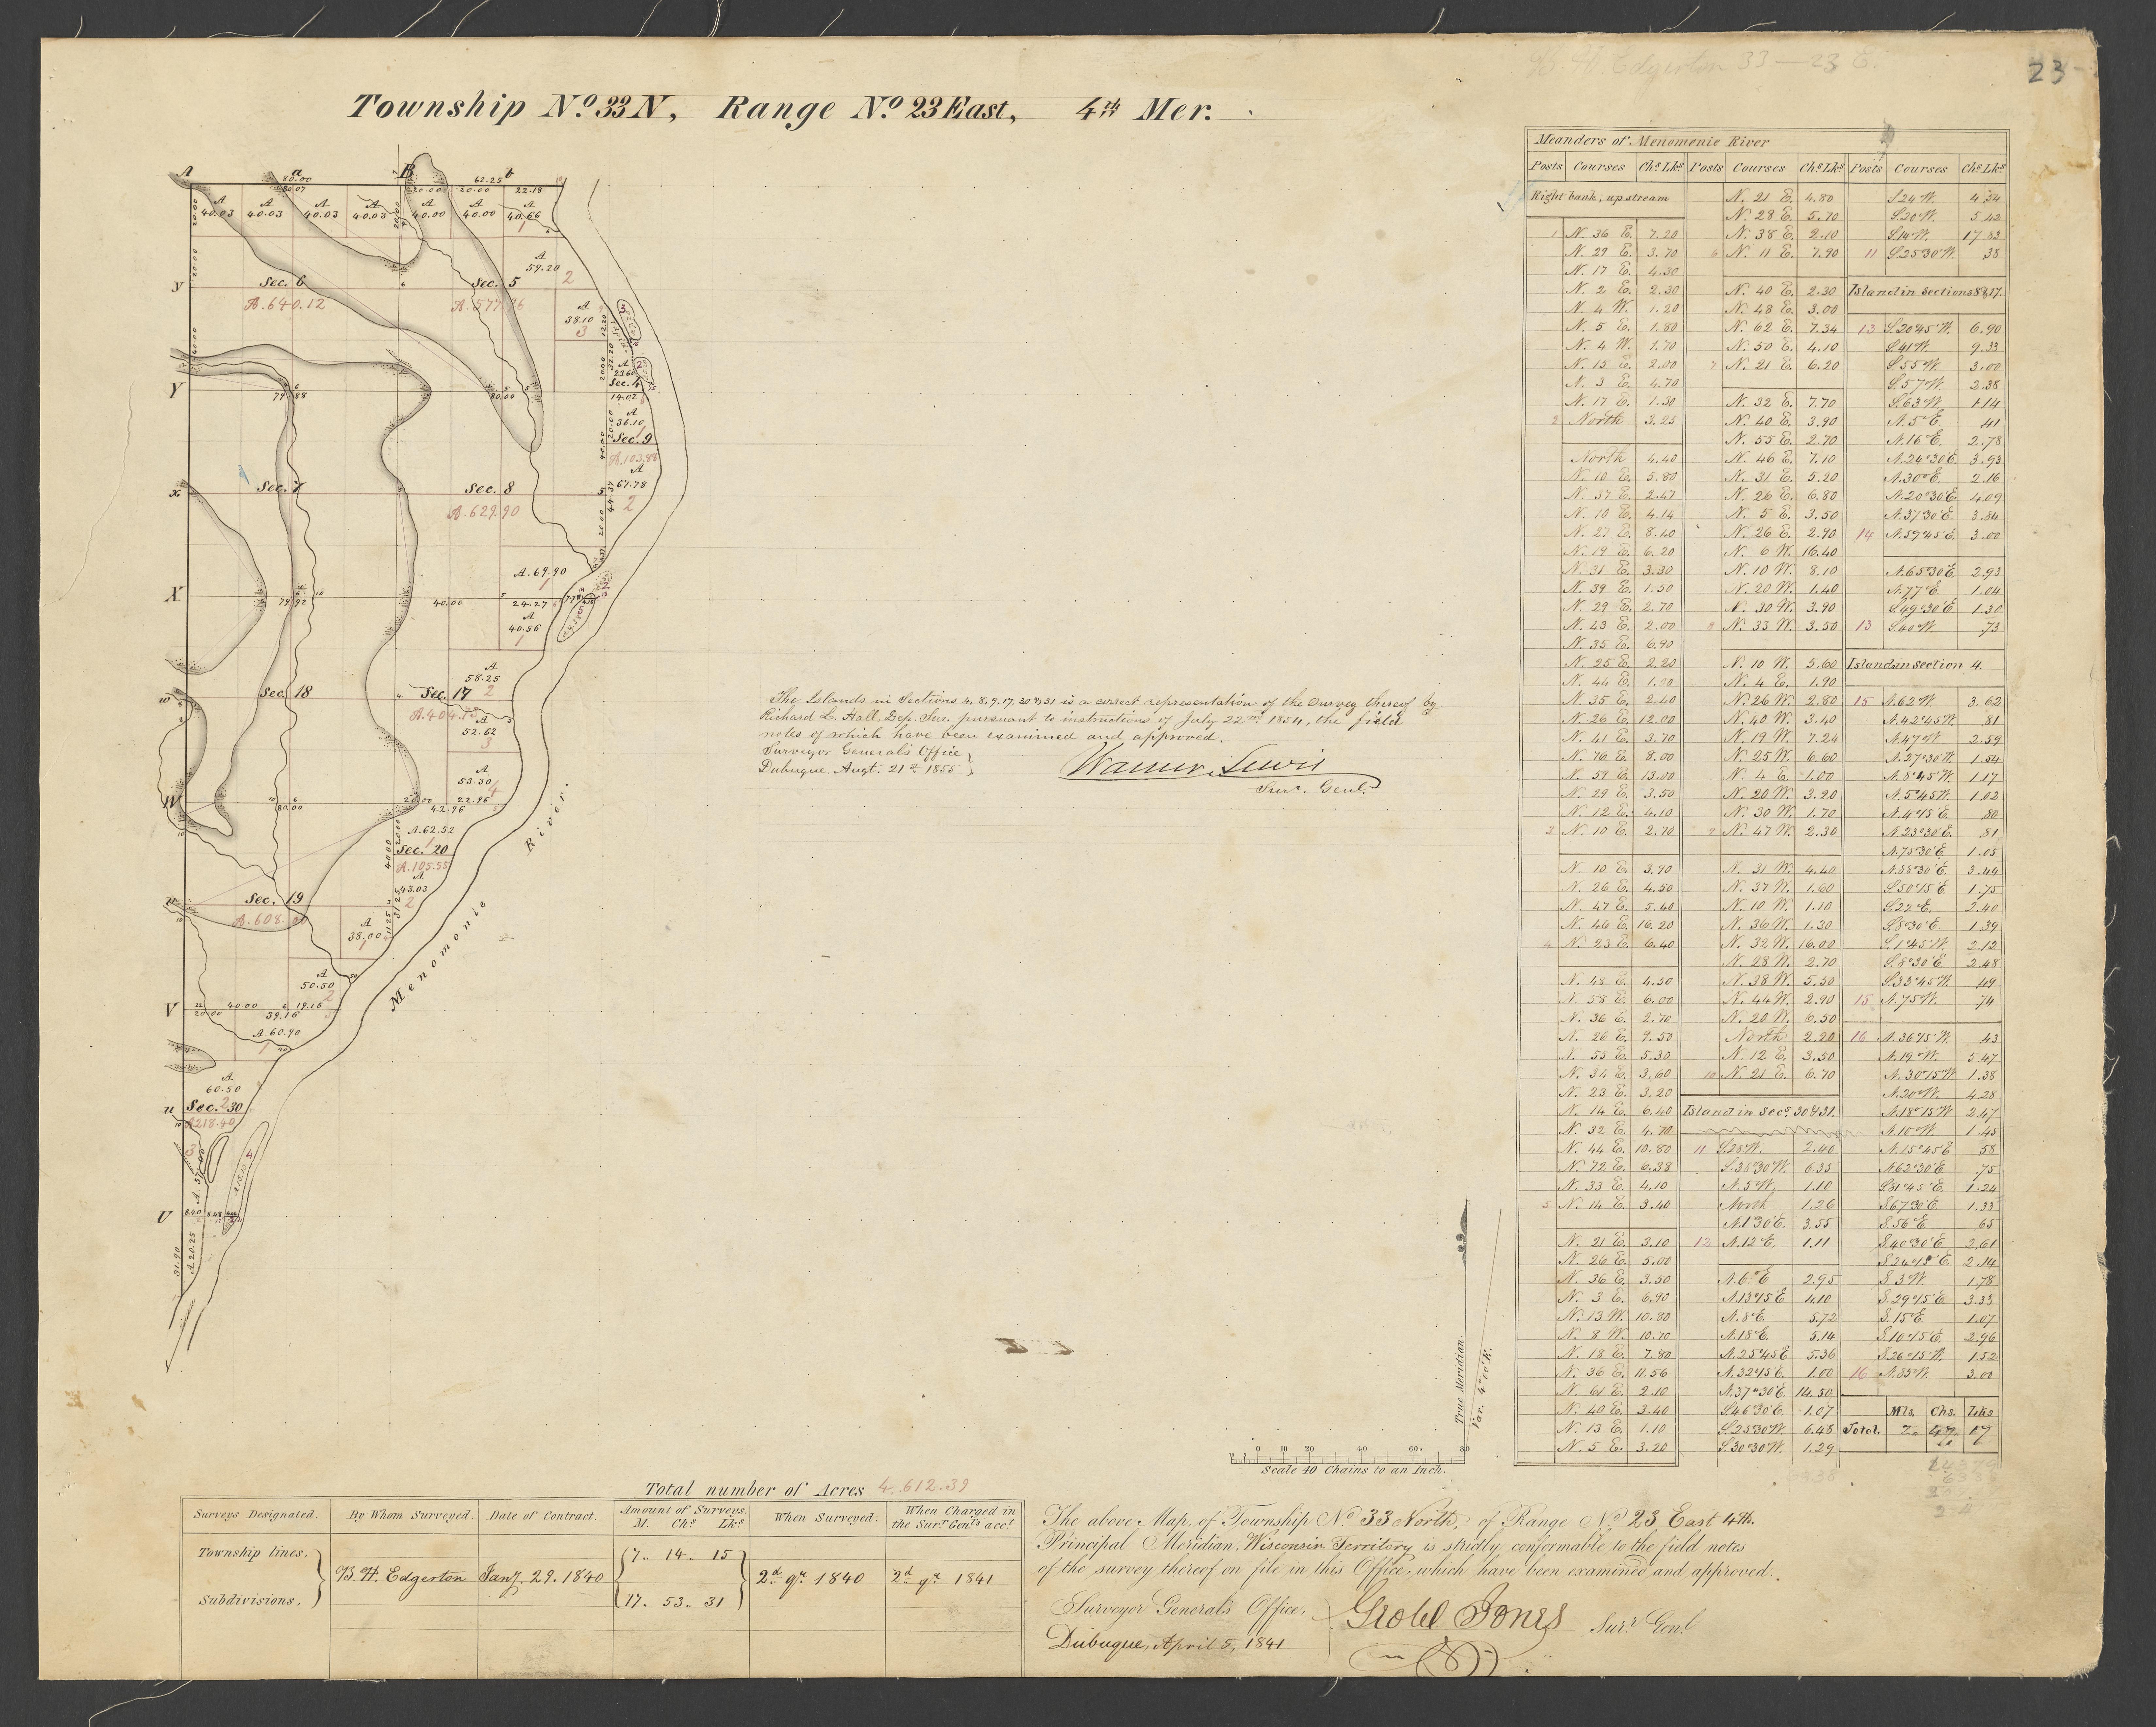 B. H. Edgerton 33 — 23 E.
23
Township No. 33 N, Range No. 23 East, 4th Mer.
A a B b
80.00 62.25
80.07 20.00 20.00 22.18
A A A A A A A
40.03 40.03 40.03 40.03 40.00 40.00 40.66
1
A
59.20
2
y Sec. 6 Sec. 5
A. 640.12
A
38.10
3
A
23.60
Sec. 4
Y 79.88 80.00 14.02
A
36.10
1
Sec. 9
A. 103.88
A
67.78
2
x Sec. 7 Sec. 8
A. 629.90
A. 69.90
1
X 79.92 40.00 24.27
A
40.56
1
A
58.25
w Sec. 18 Sec. 17 2
A
52.62
3
A
53.30
4
W 80.00 20.00 22.96
42.96
A. 62.52
1
Sec. 20
A. 105.55
A
43.03
2
Sec. 19
A
38.00
1
A
50.50
2
V 20.00 40.00 19.16
39.16
A. 60.90
1
A
60.50
u Sec. 30
A 218.40
3
U 8.40
A. 20.25
31.90
Menomonie River.
The Islands in Sections 4, 8, 9, 17, 30 & 31 is a correct representation of the Survey thereof by
Richard L. Hall, Dep. Sur. pursuant to instructions of July 22nd 1854, the field
notes of which have been examined and approved.
Surveyor General's Office
Dubuque, Augt. 21st 1855
Warner Lewis
Surr. Genl.
True Meridian.
Var. 4°00' E.
0 10 20 40 60 80
Scale 40 Chains to an Inch.
Meanders of Menomenie River
Posts Courses Chs. Lks. Posts Courses Chs. Lks. Posts Courses Chs. Lks.
Right bank, up stream
1 N. 36 E. 7.20
N. 29 E. 3.70
N. 17 E. 4.30
N. 2 E. 2.30
N. 4 W. 1.20
N. 5 E. 1.80
N. 4 W. 1.70
N. 15 E. 2.00
N. 3 E. 4.70
N. 17 E. 1.30
2 North 3.25
North 4.40
N. 10 E. 5.80
N. 37 E. 2.47
N. 10 E. 4.14
N. 27 E. 8.40
N. 19 E. 6.20
N. 31 E. 3.30
N. 39 E. 1.50
N. 29 E. 2.70
N. 43 E. 2.00
N. 35 E. 6.90
N. 25 E. 2.20
N. 44 E.
N. 35 E. 2.40
N. 26 E. 12.00
N. 41 E. 3.70
N. 76 E. 8.00
N. 59 E. 13.00
N. 29 E. 3.50
N. 12 E. 4.10
3 N. 10 E. 2.70
N. 10 E. 3.90
N. 26 E. 4.50
N. 47 E. 5.40
N. 46 E. 16.20
4 N. 23 E. 6.40
N. 48 E. 4.50
N. 58 E. 6.00
N. 36 E. 2.70
N. 26 E. 9.50
N. 55 E. 5.30
N. 34 E. 3.60
N. 23 E. 3.20
N. 14 E. 6.40
N. 32 E. 4.70
N. 44 E. 10.80
N. 72 E. 6.38
N. 33 E. 4.10
5 N. 14 E. 3.40
N. 21 E. 3.10
N. 26 E. 5.00
N. 36 E. 3.50
N. 3 E. 6.90
N. 13 W. 10.80
N. 8 W. 10.70
N. 18 E. 7.80
N. 36 E. 11.56
N. 61 E. 2.10
N. 40 E. 3.40
N. 13 E. 1.10
N. 5 E. 3.20
N. 21 E. 4.80
N. 28 E. 5.70
N. 38 E. 2.10
6 N. 11 E. 7.90
N. 40 E. 2.30
N. 48 E. 3.00
N. 62 E. 7.34
N. 50 E. 4.10
7 N. 21 E. 6.20
N. 32 E. 7.70
N. 40 E. 3.90
N. 55 E. 2.70
N. 46 E. 7.10
N. 31 E. 5.20
N. 26 E. 6.80
N. 5 E. 3.50
N. 26 E. 2.90
N. 6 W. 16.40
N. 10 W. 8.10
N. 20 W. 1.40
N. 30 W. 3.90
8 N. 33 W. 3.50
N. 10 W. 5.60
N. 4 E. 1.90
N. 26 W. 2.80
N. 40 W. 3.40
N. 19 W. 7.24
N. 25 W. 6.60
N. 4 E. 1.00
N. 20 W. 3.20
N. 30 W. 1.70
9 N. 47 W. 2.30
N. 31 W. 4.40
N. 37 W. 1.60
N. 10 W. 1.10
N. 36 W. 1.30
N. 32 W. 16.00
N. 28 W. 2.70
N. 38 W. 5.50
N. 44 W. 2.90
N. 20 W. 6.50
North 2.20
N. 12 E. 3.50
10 N. 21 E. 6.70
Island in Secs. 30 & 31.
11 S. 28 W. 2.40
S. 38°30 W. 6.35
N. 5° W. 1.10
North 1.26
N. 1°30 E. 3.55
12 N. 12° E. 1.11
N. 6° E. 2.95
N. 13°15 E. 4.10
N. 8° E. 5.72
N. 18° E. 5.14
N. 25°45 E. 5.36
N. 32°15 E. 1.00
N. 37°30 E. 14.50
S. 46°30 E. 1.07
S. 25°30 W. 6.48
S. 30°30 W. 1.29
S. 24 W. 4.34
S. 20° W. 5.42
S. 14° W. 17.82
11 S. 25°30 W. .38
Island in Sections 8 & 17.
13 S. 20°45 W. 6.90
S. 41 W. 9.33
S. 55° W. 3.00
S. 57° W. 2.38
S. 63° W. 1.14
N. 5° E. .41
N. 16° E. 2.78
N. 24°30 E. 3.93
N. 30° E. 2.16
N. 20°30 E. 4.09
N. 37°30 E. 3.84
14 N. 59°45 E. 3.00
N. 65°30 E. 2.93
N. 77° E. 1.04
S. 49°30 E. 1.30
13 S. 40° W. .73
Islands in section 4.
15 N. 62° W. 3.62
N. 42°45 W. .81
N. 47° W. 2.59
N. 27°30 W. 1.54
N. 8°45 W. 1.17
N. 5°45 W. 1.02
N. 4°15 E. .80
N. 23°30 E. .81
N. 75°30 E. 1.05
N. 88°30 E. 3.44
S. 50°15 E. 1.75
S. 22° E. 2.40
S. 8°30 E. 1.39
S. 1°45 W. 2.12
S. 8°30 E. 2.48
S. 33°45 W. .49
15 N. 75° W. .74
16 N. 36°15 W. .43
N. 19° W. 5.47
N. 30°15 W. 1.38
N. 20° W. 4.28
N. 18°15 W. 2.47
N. 10° W. 1.45
N. 15°45 E. .58
N. 62°30 E. .75
S. 81°45 E. 1.24
S. 67°30 E. 1.33
S. 56° E. .65
S. 40°30 E. 2.61
S. 24°15 E. 2.14
S. 3° W. 1.78
S. 29°15 E. 3.33
S. 15° E. 1.07
S. 10°15 E. 2.96
S. 26°15 W. 1.52
16 N. 83° W. 3.00
Mls. Chs. Lks
Total. 2 47 17
Total number of Acres 4,612.39
Surveys Designated. By Whom Surveyed. Date of Contract. Amount of Surveys. M. Chs. Lks. When Surveyed. When Charged in the Surr. Genl's acct.
Township lines, 7. 14. 15
B. H. Edgerton Jany. 29. 1840 2d qr. 1840 2d qr. 1841
Subdivisions, 17. 53. 31
The above Map, of Township No. 33 North, of Range No. 23 East 4th.
Principal Meridian, Wisconsin Territory is strictly conformable to the field notes
of the survey thereof on file in this Office, which have been examined and approved.
Surveyor General's Office,
Dubuque, April 5, 1841
Geo W Jones Surr. Genl.